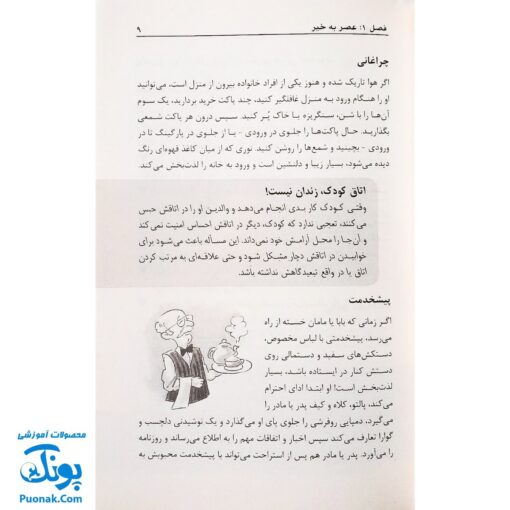 فصل ۱: عصر به خیر ۹
چراغانی
اگر هوا تاریک شده و هنوز یکی از افراد خانواده بیرون از منزل است، می‌توانید
او را هنگام ورود به منزل غافلگیر کنید، چند پاکت خرید بردارید، یک سوم
آن‌ها را با شن، سنگریزه یا خاک پُر کنید. سپس درون هر پاکت شمعی
بگذارید. حال پاکت‌ها را جلوی در ورودی - یا از جلوی در پارکینگ تا در
ورودی - بچینید و شمع‌ها را روشن کنید. نوری که از میان کاغذ قهوه‌ای رنگ
دیده می‌شود، بسیار زیبا و دلنشین است و ورود به خانه را لذت‌بخش می‌کند.
اتاق کودک، زندان نیست!
وقتی کودک کار بدی انجام می‌دهد و والدین او را در اتاقش حبس
می‌کنند، تعجبی ندارد که کودک، دیگر در اتاقش احساس امنیت نمی کند
و آن‌جا را محل آرامش خود نمی‌داند. این مسأله باعث می‌شود برای
خوابیدن در اتاقش دچار مشکل شود و حتی علاقه‌ای به مرتب کردن
اتاق یا در واقع تبعیدگاهش نداشته باشد.
پیشخدمت
اگر زمانی که بابا یا مامان خسته از راه
می‌رسد، پیشخدمتی با لباس مخصوص،
دستکش‌های سفید و دستمالی روی
دستش کنار در ایستاده باشد، بسیار
لذت‌بخش است! او ابتدا ادای احترام
می‌کند، پالتو، کلاه و کیف پدر یا مادر را
می‌گیرد، دمپایی روفرشی را جلوی پای او می‌گذارد و یک نوشیدنی دلچسب و
گوارا تعارف می‌کند سپس اخبار و اتفاقات مهم را به اطلاع می‌رساند و روزنامه
را می‌آورد. پدر یا مادر هم پس از استراحت می‌تواند با پیشخدمت محبوبش به
محصولات آموزشی
پونک
Puonak.Com